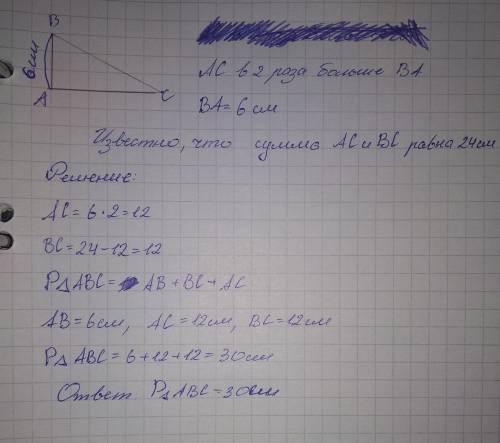 B
6см
A
C
AC в 2 роза больше BA
BA = 6 см
Известно, что сумма AC и BC равна 24см
Решение:
AC = 6 · 2 = 12
BC = 24 - 12 = 12
P△ABC = AB + BC + AC
AB = 6см, AC = 12см, BC = 12см
P△ ABC = 6 + 12 + 12 = 30см
Ответ P△ABC = 30см